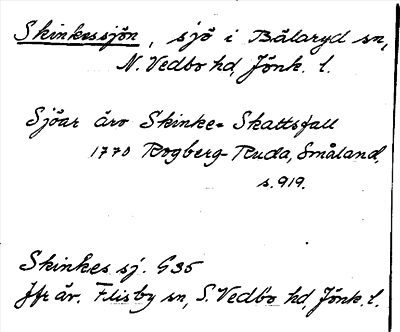 Skinkessjön, sjö i Bälaryd sn,
N. Vedbo hd, Jönk. l.
Sjöar äro Skinke- Skattsfall
1770 Rogberg-Ruda, Småland,
s. 919.
Skinkes sj. G35
Jfr äv. Flisby sn, S. Vedbo hd, Jönk. l.